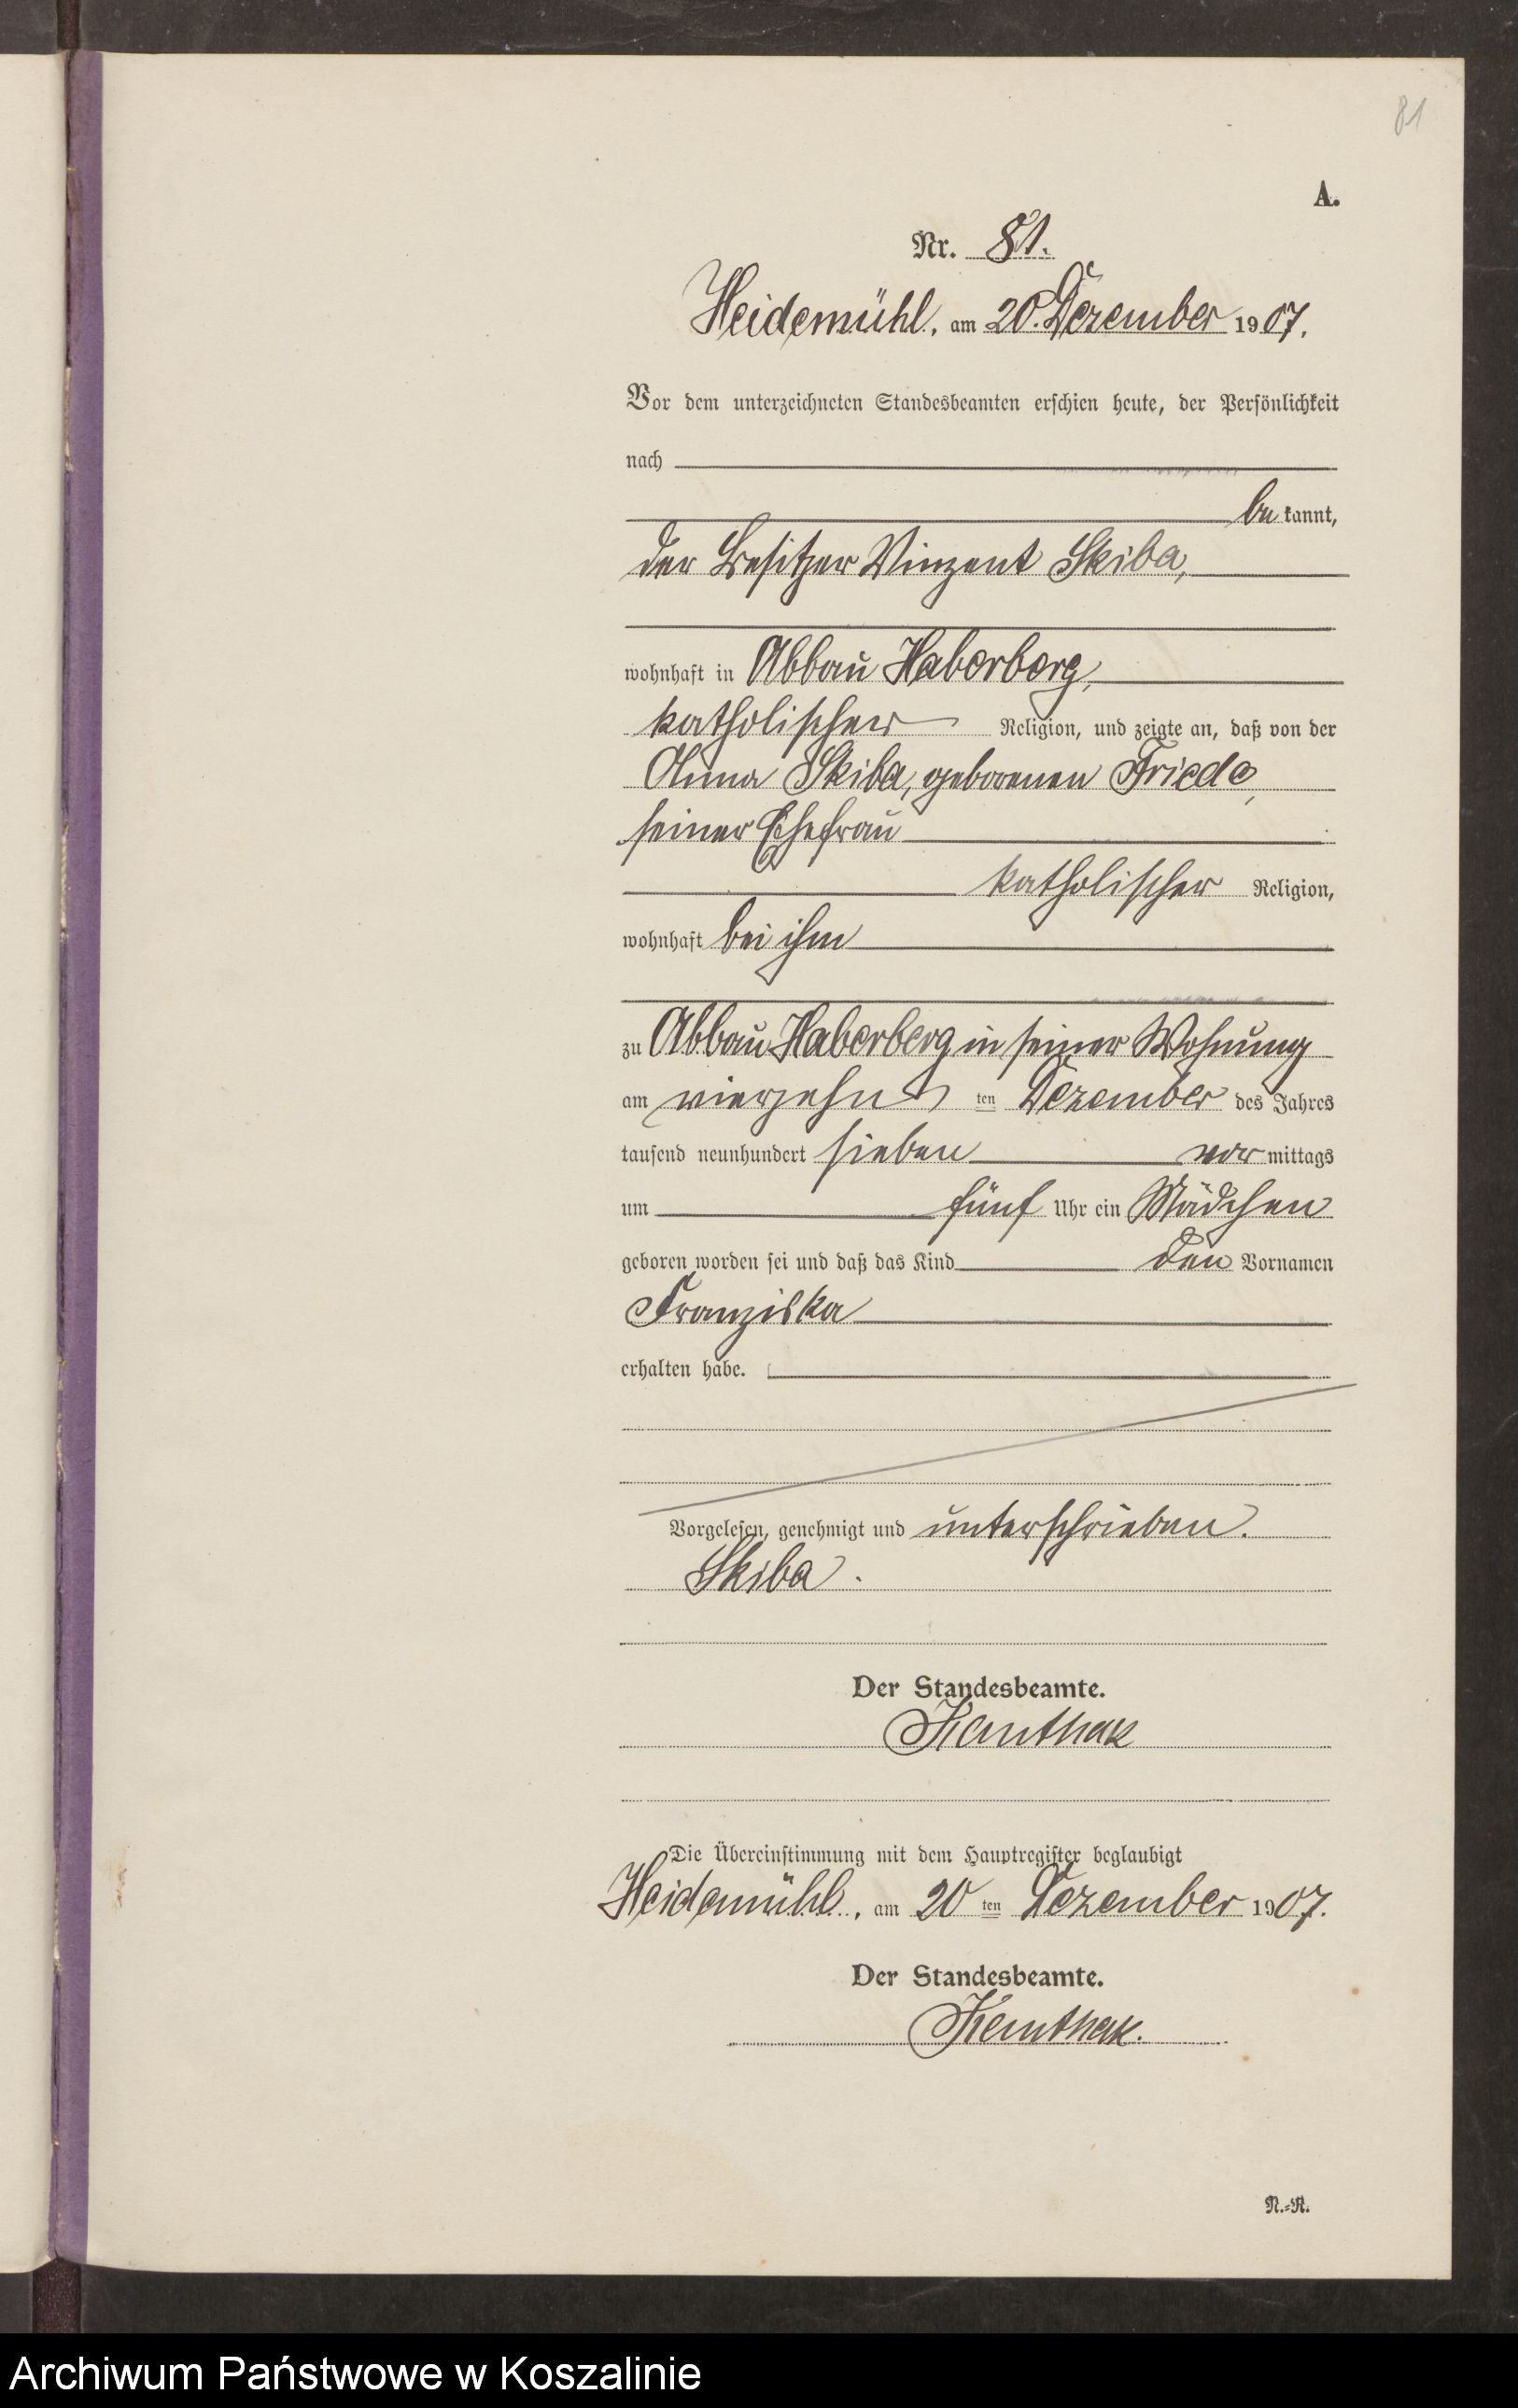 81
A.
Nr. 81.
Heidemühl, am 20. Dezember 1907.
Vor dem unterzeichneten Standesbeamten erschien heute, der Persönlichkeit
nach
be kannt,
der Besitzer Vinzent Skiba,
wohnhaft in Abbau Haberberg,
katholischer Religion, und zeigte an, daß von der
Anna Skiba, geborenen Friede,
seiner Ehefrau
katholischer Religion,
wohnhaft bei ihm
zu Abbau Haberberg in seiner Wohnung
am vierzehn ten Dezember des Jahres
tausend neunhundert sieben vor mittags
um fünf Uhr ein Mädchen
geboren worden sei und daß das Kind den Vornamen
Franziska
erhalten habe.
Vorgelesen, genehmigt und unterschrieben.
Skiba.
Der Standesbeamte.
Die Übereinstimmung mit dem Hauptregister beglaubigt
Heidemühl, am 20 ten Dezember 1907.
Der Standesbeamte.
N.-R.
Archiwum Państwowe w Koszalinie